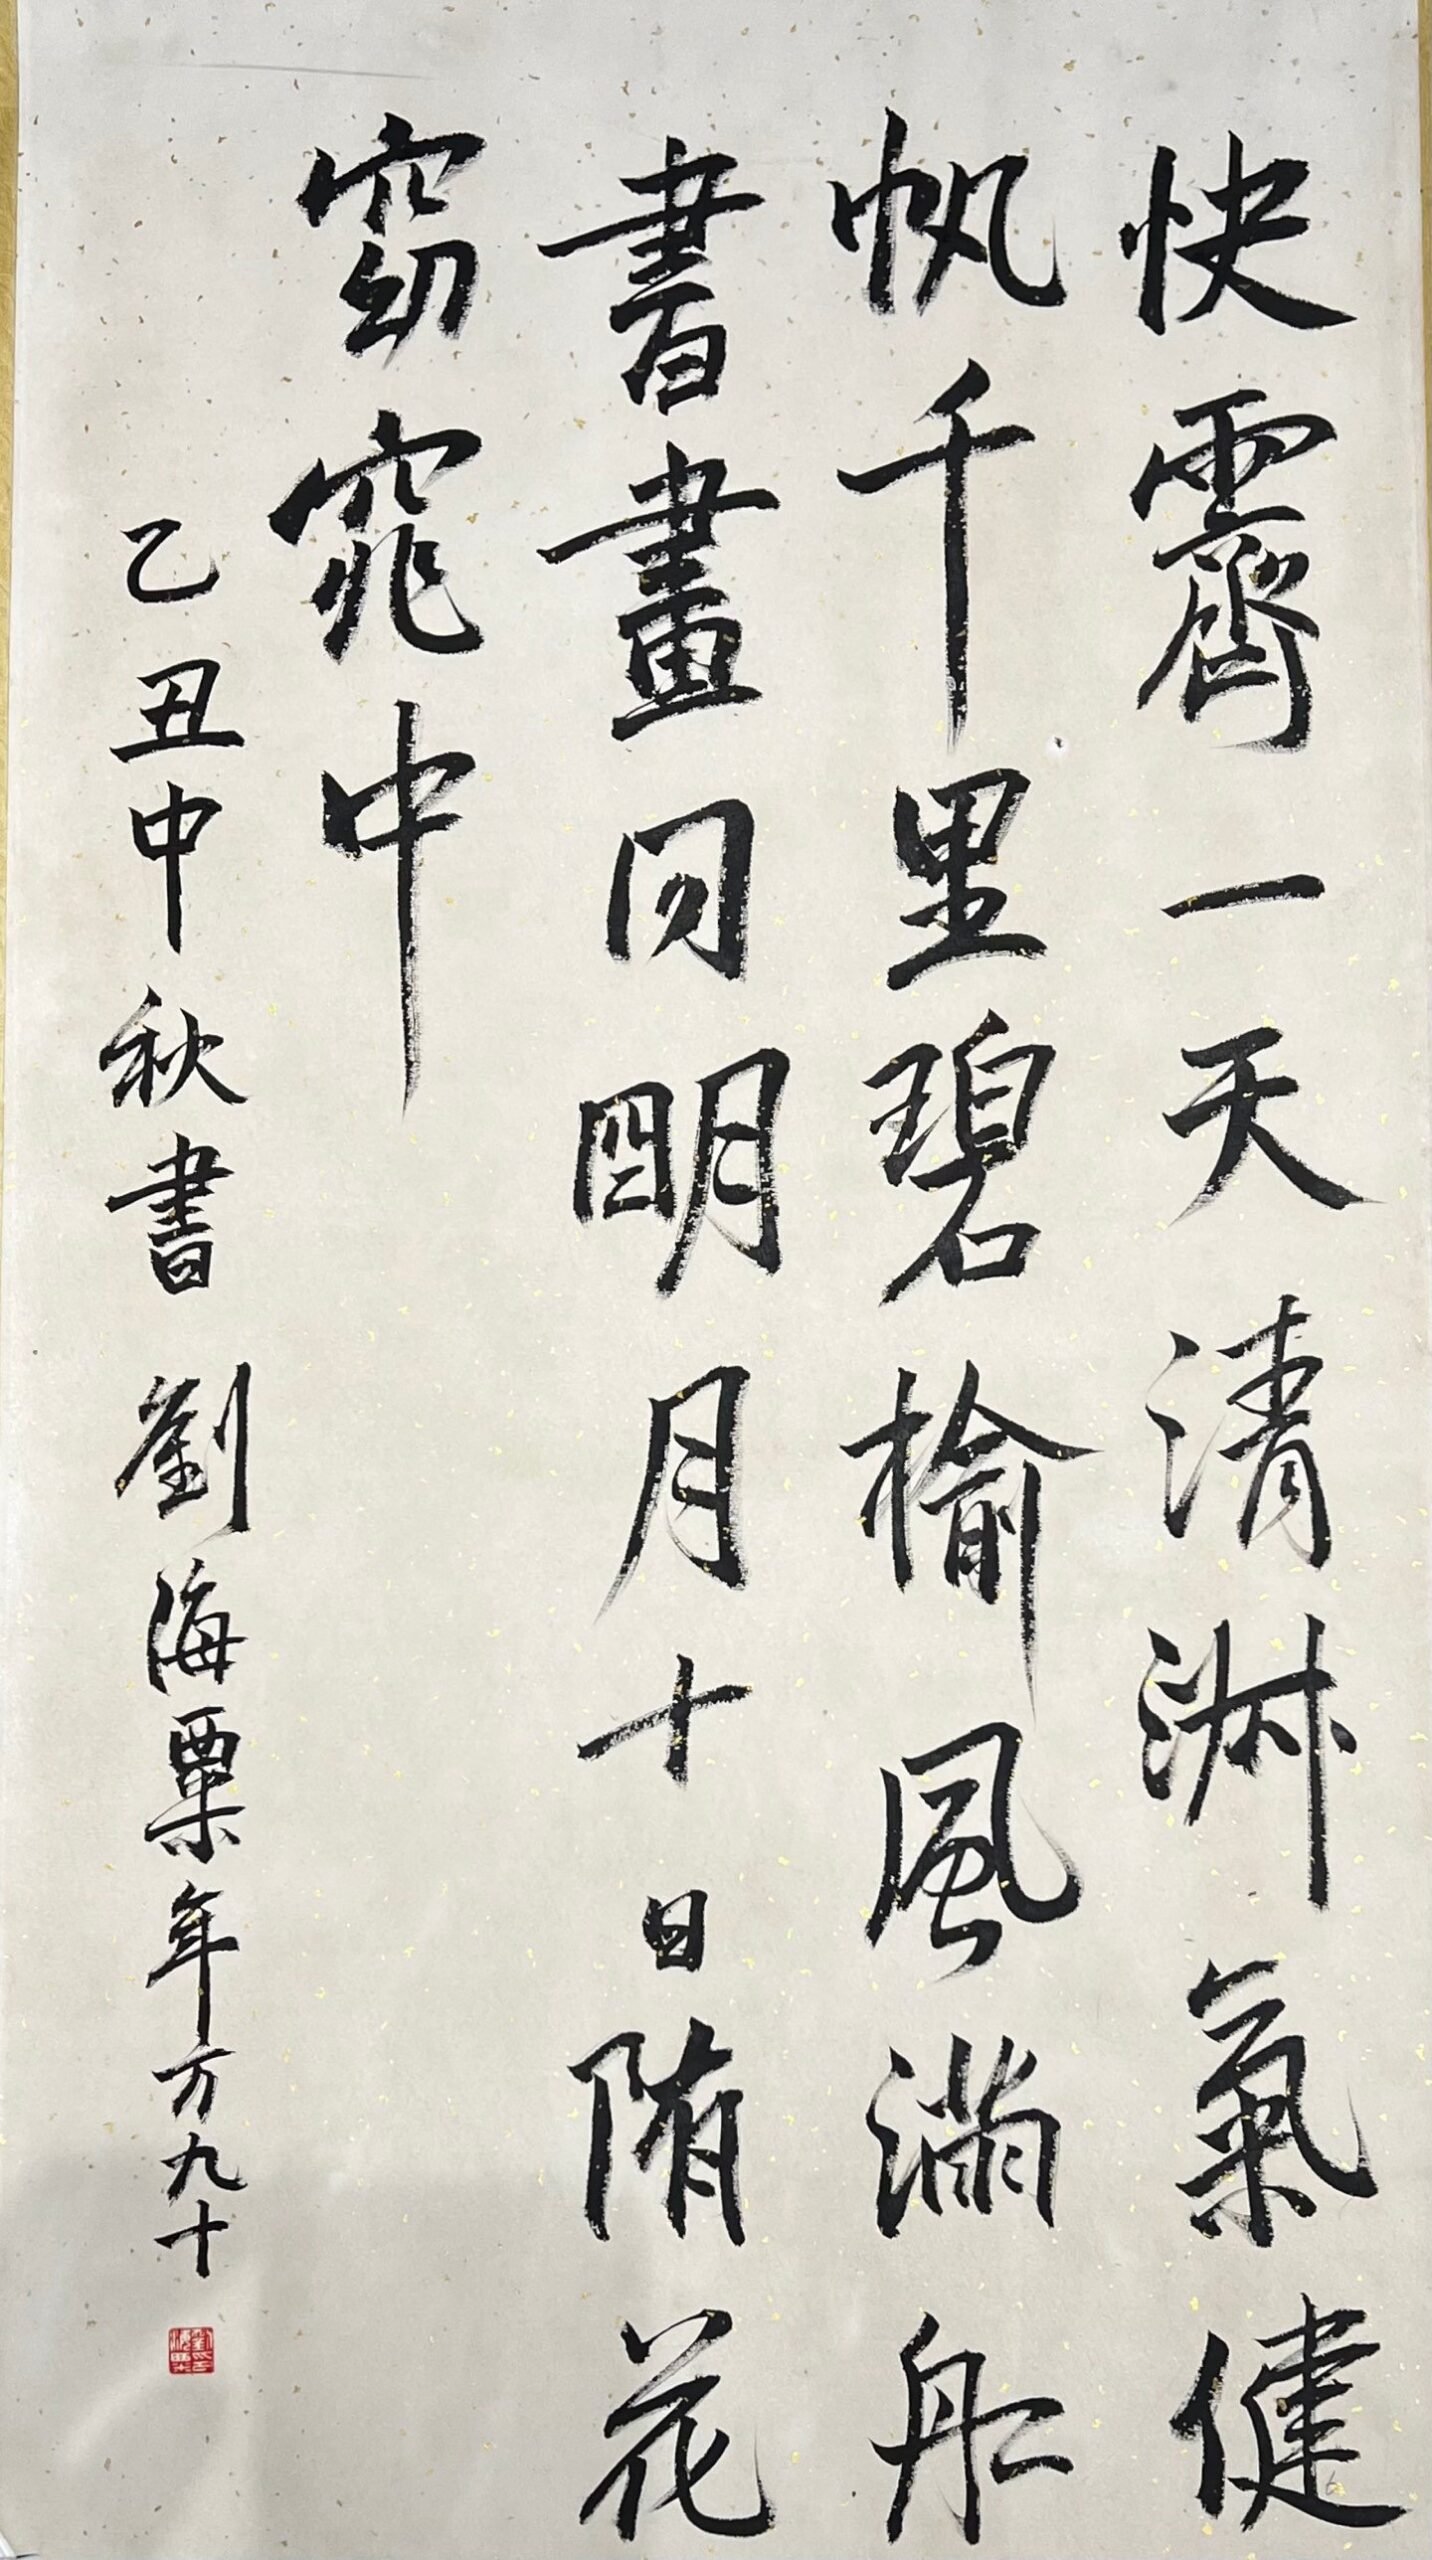 快霽一天清淑氣健
帆千里碧榆風滿舟
書畫同明月十日隋花
窈窕中
乙丑中秋書 劉海粟年方九十